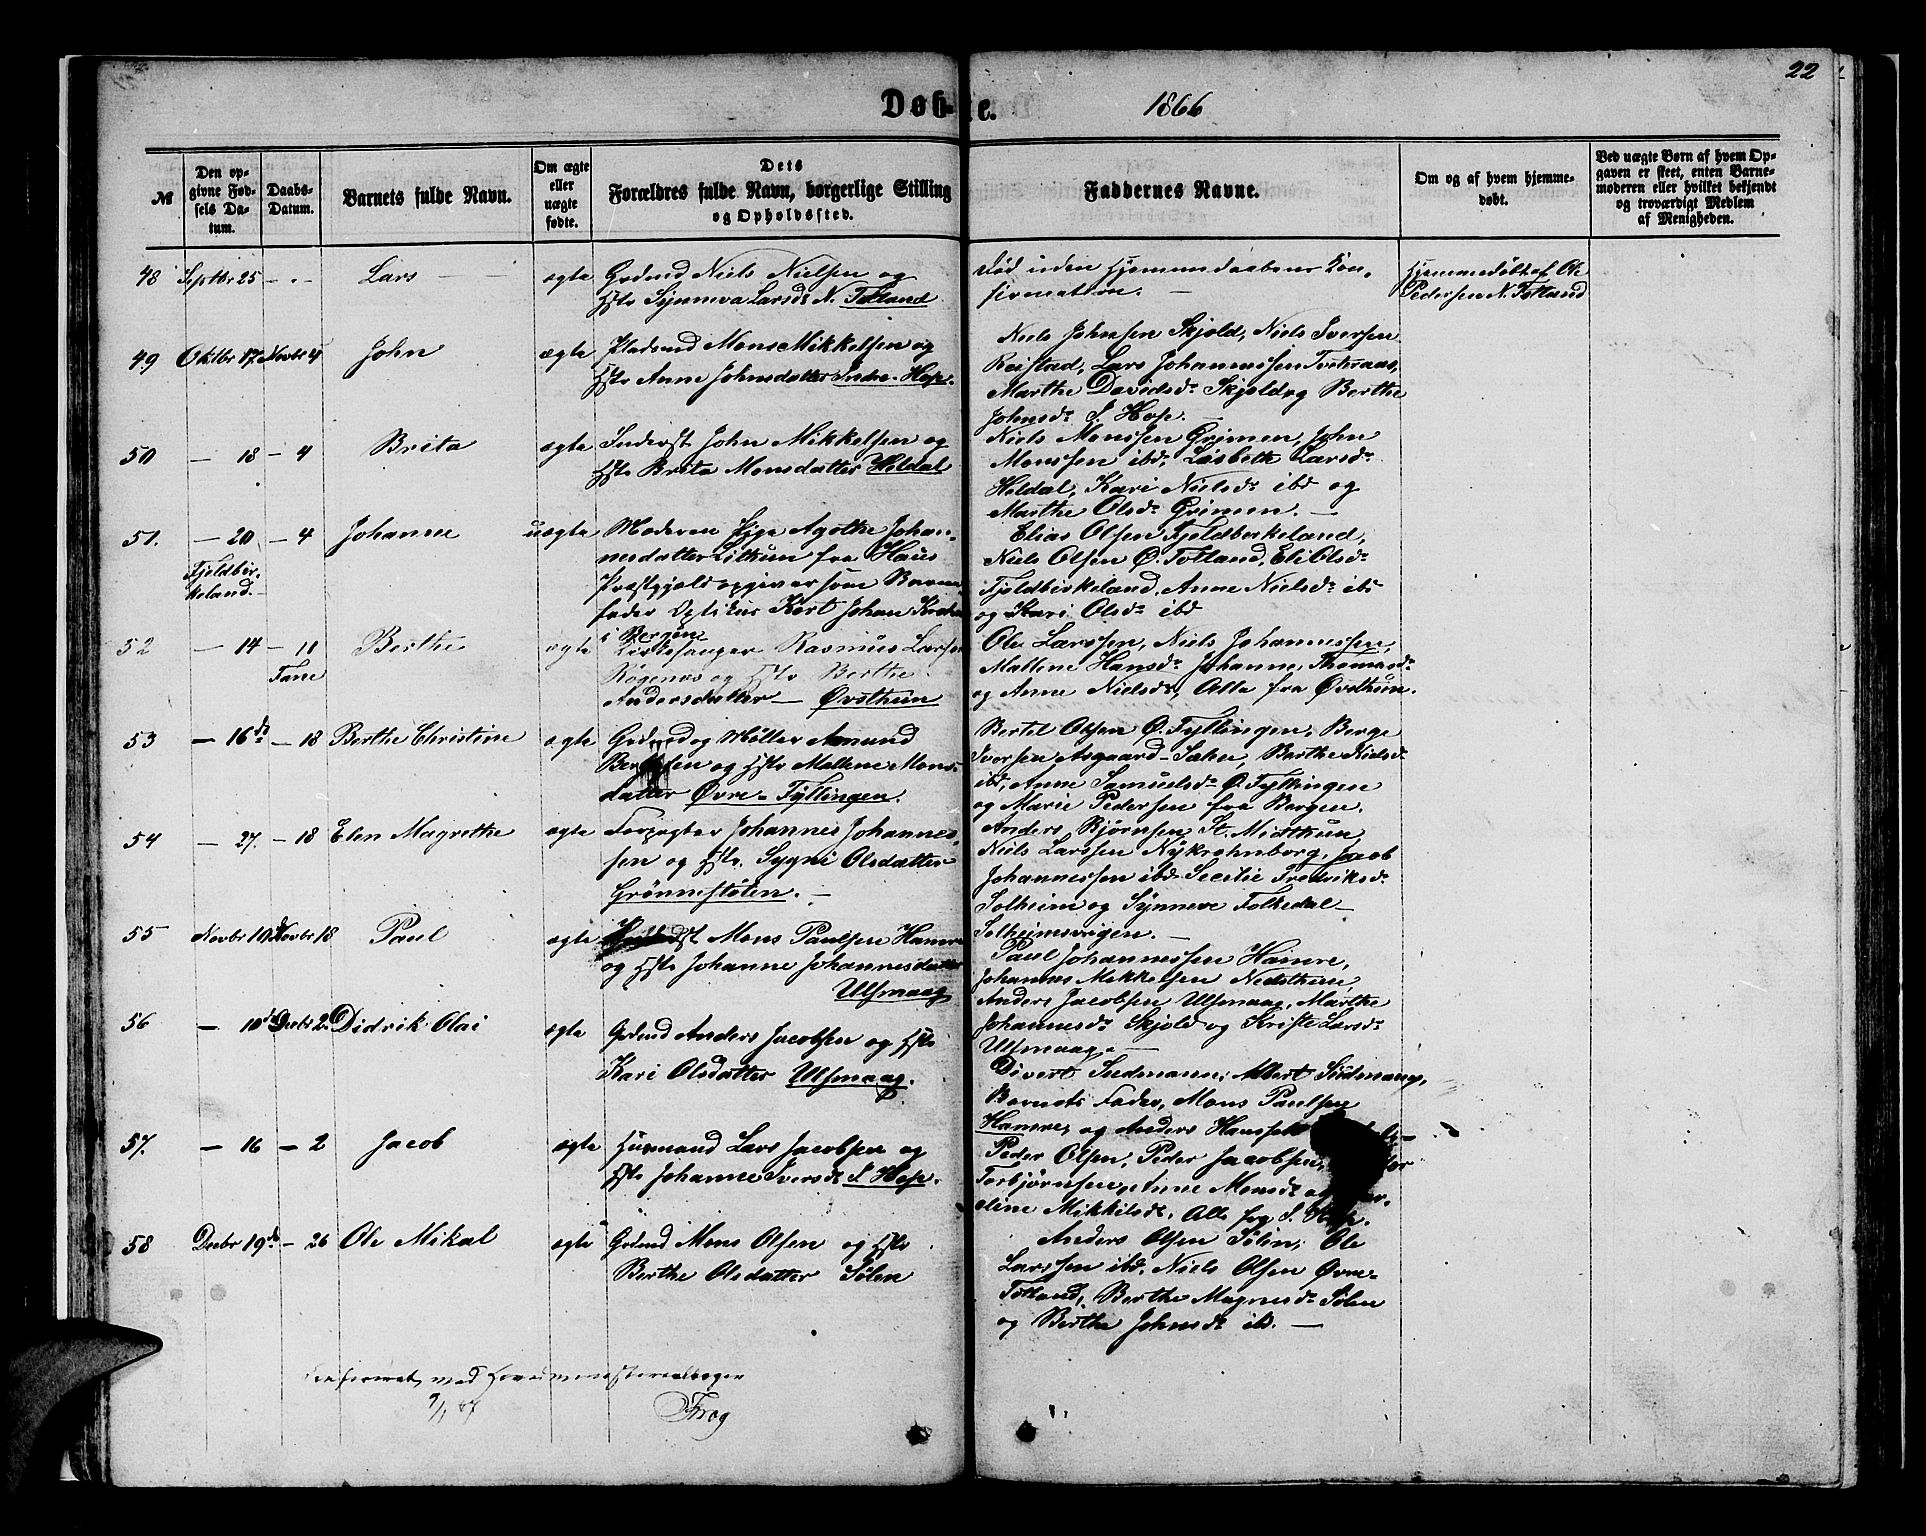 22
Døbte. 1866
№
Den opgivne Fødsels Datum.
Daabs-Datum.
Barnets fulde Navn.
Om ægte eller uægte fødte.
Dets Forældres fulde Navn, borgerlige Stilling og Opholdssted.
Faddernes Navne.
Om og af hvem hjemmedøbt.
Ved uægte Børn af hvem Opgaven er skeet, enten Barnemoderen eller hvilket bekjendt og troværdigt Medlem af Menigheden.
48 Septbr 25 - " - Lars ægte Grdmd Niels Nielsen og
Hstr Synneva Larsdr N. Totland
Død uden Hjemmedaabens Con-
firmation. —
Hjemmedøbt af Ole
Pedersen N. Totland
49 Oktbr 17. Novbr 4 John ægte Pladsmd Mons Mikkelsen og
Hstr Anne Johnsdatter Indre-Hop.
Niels Johnsen Skjold, Niels Iversen
Reistad, Lars Johannessen
Marthe Davidsdr Skjold og Berthe
Johnsdr I. Hop. —
50 — 18 — 4 Brita ægte Inderst John Mikkelsen og
Hstr Brita Monsdatter Heldal
Niels Monssen Grimen, John
Monssen ibd, Lisbeth Larsdr
Heldal, Kari Nielsdr ibd og
Marthe Olsdr Grimen. —
51. — 20 — 4 Johanne uægte Moderen Pige Agothe Johan-
Fjeldbir-
keland.
nesdatter Litkun fra Haus
Præstgjeld opgiver som Barne-
fader Optikus Kort Johan
i Bergen
Elias Olsen Fjeldberkeland,
Niels Olsen Ø. Totland, Eli Olsdr
Fjeldbirkeland, Anne Nielsdr ib
og Kari Olsdr ibd
52 — 14 — 11 Berthe ægte Kirkesanger Rasmus Larsen
Fane
Røgenæs og Hstr Berthe
Andersdatter — Øvsthun
Ole Larssen, Niels Johannessen,
Maltene Hansdr Johanne Thomasdr
og Anne Nielsdr, Alle fra Øvsthun.
53 — 16de — 18 Berthe Christine ægte Grdmd og Møller Amund
Bertelsen og Hstr Maltene Mons-
datter Øvre-Fyllingen.
Bertel Olsen Ø. Fyllingen, Berge
Iversen Asgaard-Sæhn, Berthe Nielsdr
ibd, Anne Samuelsdr Ø. Fyllingen
og Marie Pedersen fra Bergen.
54 — 27. — 18 Elen Magrethe ægte Forpagter Johannes Johannes-
sen og Hstr. Sygni Olsdatter
Grønnestølen. —
Anders Bjørnsen St. Midtthun
Niels Larssen Nykrohnborg, Jacob
Johannessen ibd Secilie Fredriksdr
Solheim og Synneve Folkedal
Solheimsvigen. —
55 Novbr 10de Novbr 18 Paul ægte Mons Paulsen Hamre
og Hstr Johanne Johannesdatter
Ulsmaag
Paul Johannessen Hamre,
Johannes Mikkelsen Nedsthun,
Anders Jacobsen Ulsmaag, Marthe
Johannesdr Skjold og Kriste Larsdr
Ulsmaag. —
56 — 10de Decbr 2. Didrik Olai ægte Grdmd Anders Jacobsen og Hstr
Kari Olsdatter Ulsmaag.
Divert Sudmann, Albert Sudmann,
Barnets Fader, Mons Paulsen
Hamre, og Anders
57. — 16 — 2 Jacob ægte Husmand Lars Jacobsen og
Hstr Johanne Iversdr I. Hop.
Peder Olsen, Peder Jacobsen,
Torbjørnsen, Anne Monsdr
eline Mikkelsdr. Alle fra I. Hop.
58 Decbr 19de — 26 Ole Mikal ægte Grdmd Mons Olsen og Hstr
Berthe Olsdatter Sølen
Anders Olsen Sølen, Ole
Larssen ibd, Niels Olsen Øvre-
Totland, Berthe Magnesdr Sølen
og Berthe Johnsdr ibd. —
Confereret med Hovedministerialbogen
9/1 67 Frog